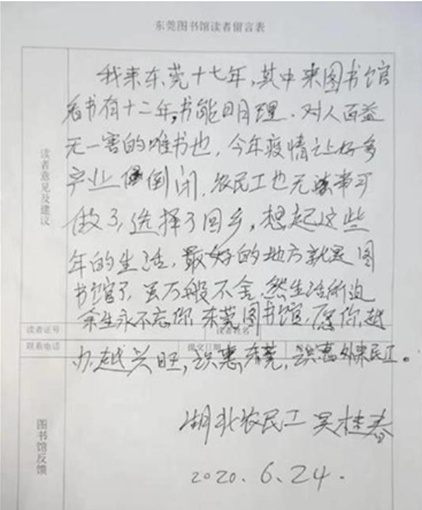 东莞图书馆读者留言表
读者意见及建议
我来东莞十七年,其中来图书馆
看书有十二年,书能明理、对人百益
无一害的唯书也,今年疫情让好多
产业倒闭,农民工也无事可
做了,选择了回乡,想起这些
年的生活,最好的地方就是图
书馆了,虽万般不舍,然生活所迫
读者证号
余生永不忘你,东莞图书馆,愿你越
联系电话
提交日期
办越兴旺,识惠东莞,识惠外来民工。
图书馆反馈
湖北农民工 吴桂春
2020.6.24.